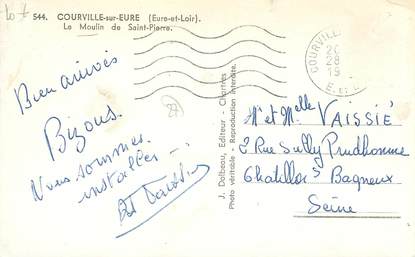 544. COURVILLE-sur-EURE (Eure-et-Loir).
Le Moulin de Saint-Pierre.
Bien arrivés
Bizous.
Nous sommes
installés
J. Dolbeau, Editeur - Chartres
Photo véritable - Reproduction interdite.
COURVILLE
28
19
E. et L.
Mr et Melle VAISSIÉ
2 Rue Sully Prudhomme
Chatillon s Bagneux
Seine